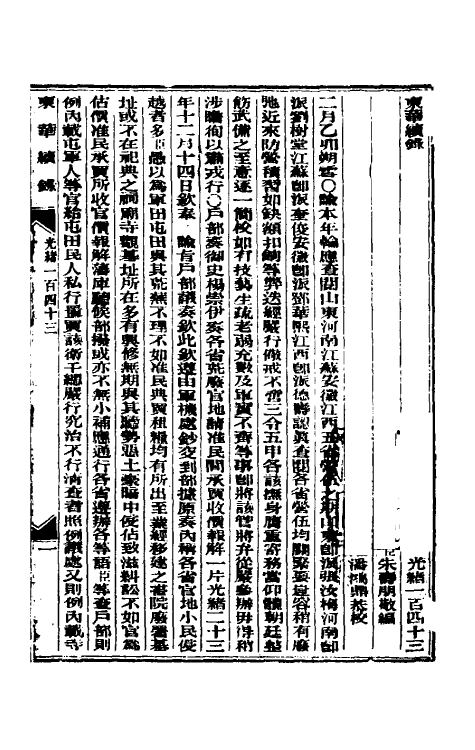 東華續錄
光緒一百四十三
臣朱壽朋敬編
潘鴻鼎恭校
二月乙卯朔雲○諭本年輪應查閱山東河南江蘇安徽江西五省營伍之期山東卽派張汝梅河南卽
派劉樹堂江蘇卽派奎俊安徽卽派鄧華熙江西卽派德壽認眞查閱各省營伍均關緊要豈容稍有廢
弛近來防營積習如缺額扣餉等弊迭經嚴行儆戒不啻三令五申各該撫身膺重寄務當仰體朝廷整
飭武備之至意逐一簡校如有技藝生疏老弱充數及軍實不齊等事卽將該管將弁從嚴參辦毋得稍
涉瞻徇以肅戎行○戶部奏御史楊崇伊奏各省荒廢官地請准民間承買收價報解一片光緒二十三
年十二月十四日欽奉 諭旨戶部議奏欽此欽遵由軍機處鈔交到部據原奏內稱各省官地小民侵
越者多臣愚以爲軍田屯田與其荒蕪不理不如准民典賣租糧均有所出至業經移建之書院廢署基
址或不在祀典之祠廟寺觀基址所在多有興修無期與其聽勢惡土豪暗中侵佔致滋糾訟不如官爲
估價准民承買所收官價報解藩庫聽候部撥或亦不無小補應通行各省遵辦各等語臣等查戶部則
例內載屯軍人等官給屯田民人私行置買該衛千總嚴行究治不行清查者照例議處又則例內載寺
東華續錄 光緒一百四十三 一